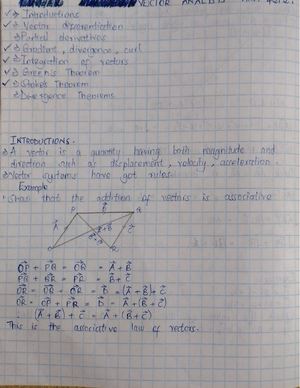 VECTOR ANALYSIS
Introductions
Vector differentiation
Partial derivatives
Gradient, divergence, curl
Integration of vectors
Green's Theorem
Stoke's Theorem
Divergence Theorems
INTRODUCTIONS.
A vector is a quantity having both magnitude and
direction such as displacement, velocity, acceleration.
Vector systems have got rules.
Example
Show that the addition of vectors is associative
P B Q
A C
O R
OP + PQ = OQ = A + B
PQ + QR = PR = B + C
OP + PR
(A + B) + C = A + (B + C)
This is the associative law of vectors.